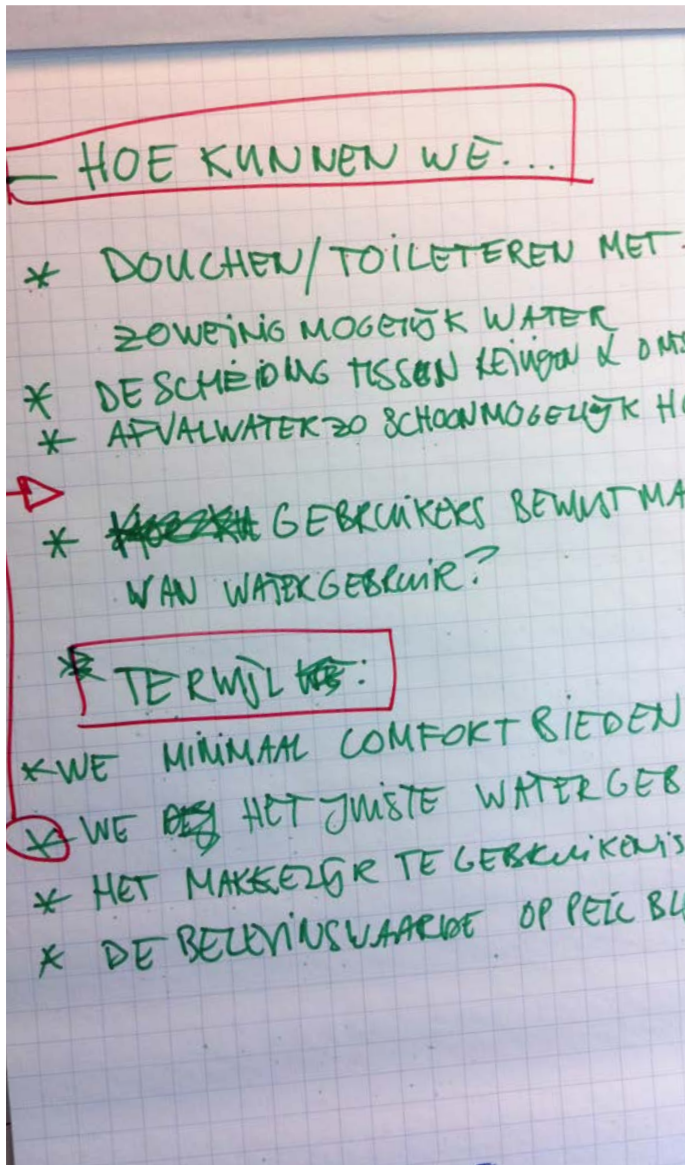 — HOE KUNNEN WE...
* DOUCHEN/TOILETEREN MET
ZOWEINIG MOGELIJK WATER
* DE SCHEIDING TUSSEN & OMS
* AFVALWATER ZO SCHOON MOGELIJK HO
* GEBRUIKERS BEWUST MA
VAN WATERGEBRUIK?
* TERWIJL :
* WE MINIMAAL COMFORT BIEDEN
* WE HET JUISTE WATER GEB
* HET MAKKELIJK TE GEBRUIKEN IS
* DE BELEVINSWAARDE OP PEIL BL